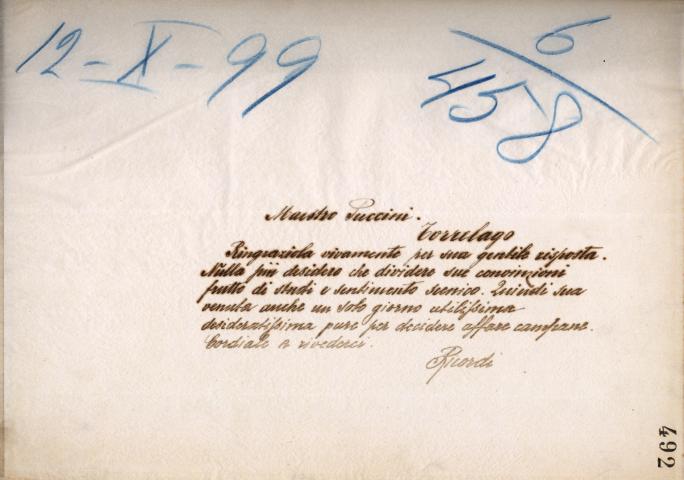 12-X-99
6
458
Maestro Puccini.
Torrelago
Ringraziola vivamente per sua gentile risposta.
Nulla più desidero che dividere sue convinzioni
frutto di studi e sentimento scenico. Quindi sua
venuta anche un solo giorno utilissima
desideratissima pure per decidere affare campane.
Cordiale a rivederci.
Ricordi
492